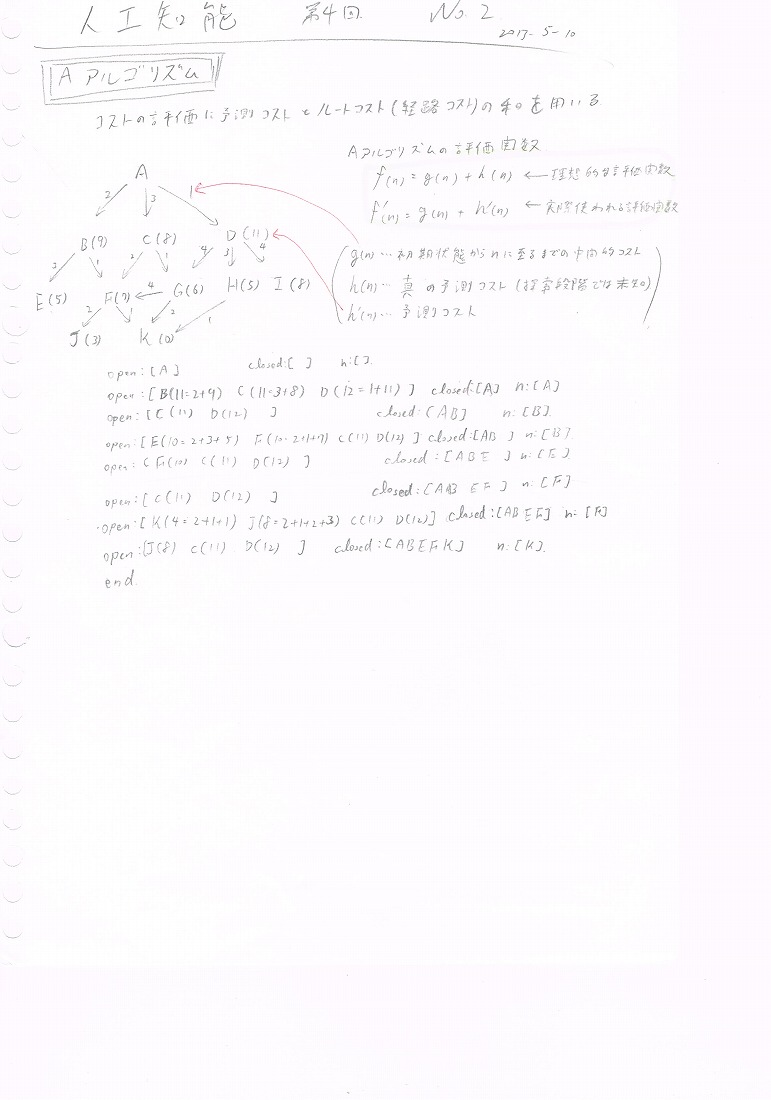 人工知能 第4回 No.2
2017-5-10
Aアルゴリズム
コストの評価に予測コストとルートコスト(経路コスト)の和を用いる.
Aアルゴリズムの評価関数
f(n) = g(n) + h(n) ← 理想的な評価関数
f'(n) = g(n) + h'(n) ← 実際使われる評価関数
g(n)… 初期状態からnに至るまでの中間的コスト
h(n)… 真の予測コスト(探索段階では未知)
h'(n)… 予測コスト
A
2 3 1
B(9) C(8) D(11)
1 2 1 4 3 4
E(5) F(7) 4 G(6) H(5) I(8)
2 1 2 1
J(3) K(0)
open:[A] closed:[ ] n:[ ].
open:[B(11=2+9) C(11=3+8) D(12=1+11)] closed:[A] n:[A]
open:[C(11) D(12) ] closed:[AB] n:[B].
open:[E(10=2+3+5) F(10=2+1+7) C(11) D(12)] closed:[AB ] n:[B].
open:[F(10) C(11) D(12) ] closed:[ABE ] n:[E].
open:[C(11) D(12) ] closed:[AB EF] n:[F]
open:[K(4=2+1+1) J(8=2+1+2+3) C(11) D(12)] closed:[ABEF] n:[F]
open:[J(8) C(11) D(12) ] closed:[ABEFK] n:[K].
end.